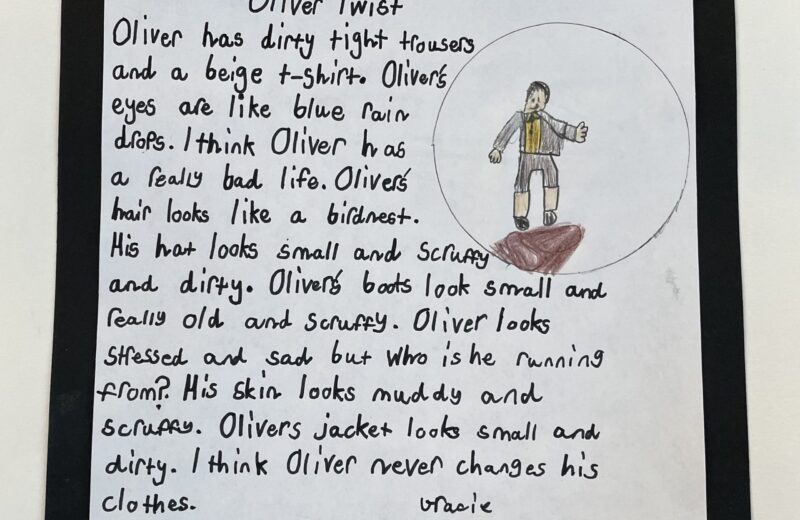 Oliver Twist
Oliver has dirty tight trousers
and a beige t-shirt. Oliver's
eyes are like blue rain
drops. I think Oliver has
a really bad life. Oliver's
hair looks like a birdnest.
His hat looks small and scruffy
and dirty. Oliver's boots look small and
really old and scruffy. Oliver looks
stressed and sad but who is he running
from? His skin looks muddy and
scruffy. Olivers jacket looks small and
dirty. I think Oliver never changes his
clothes. Gracie